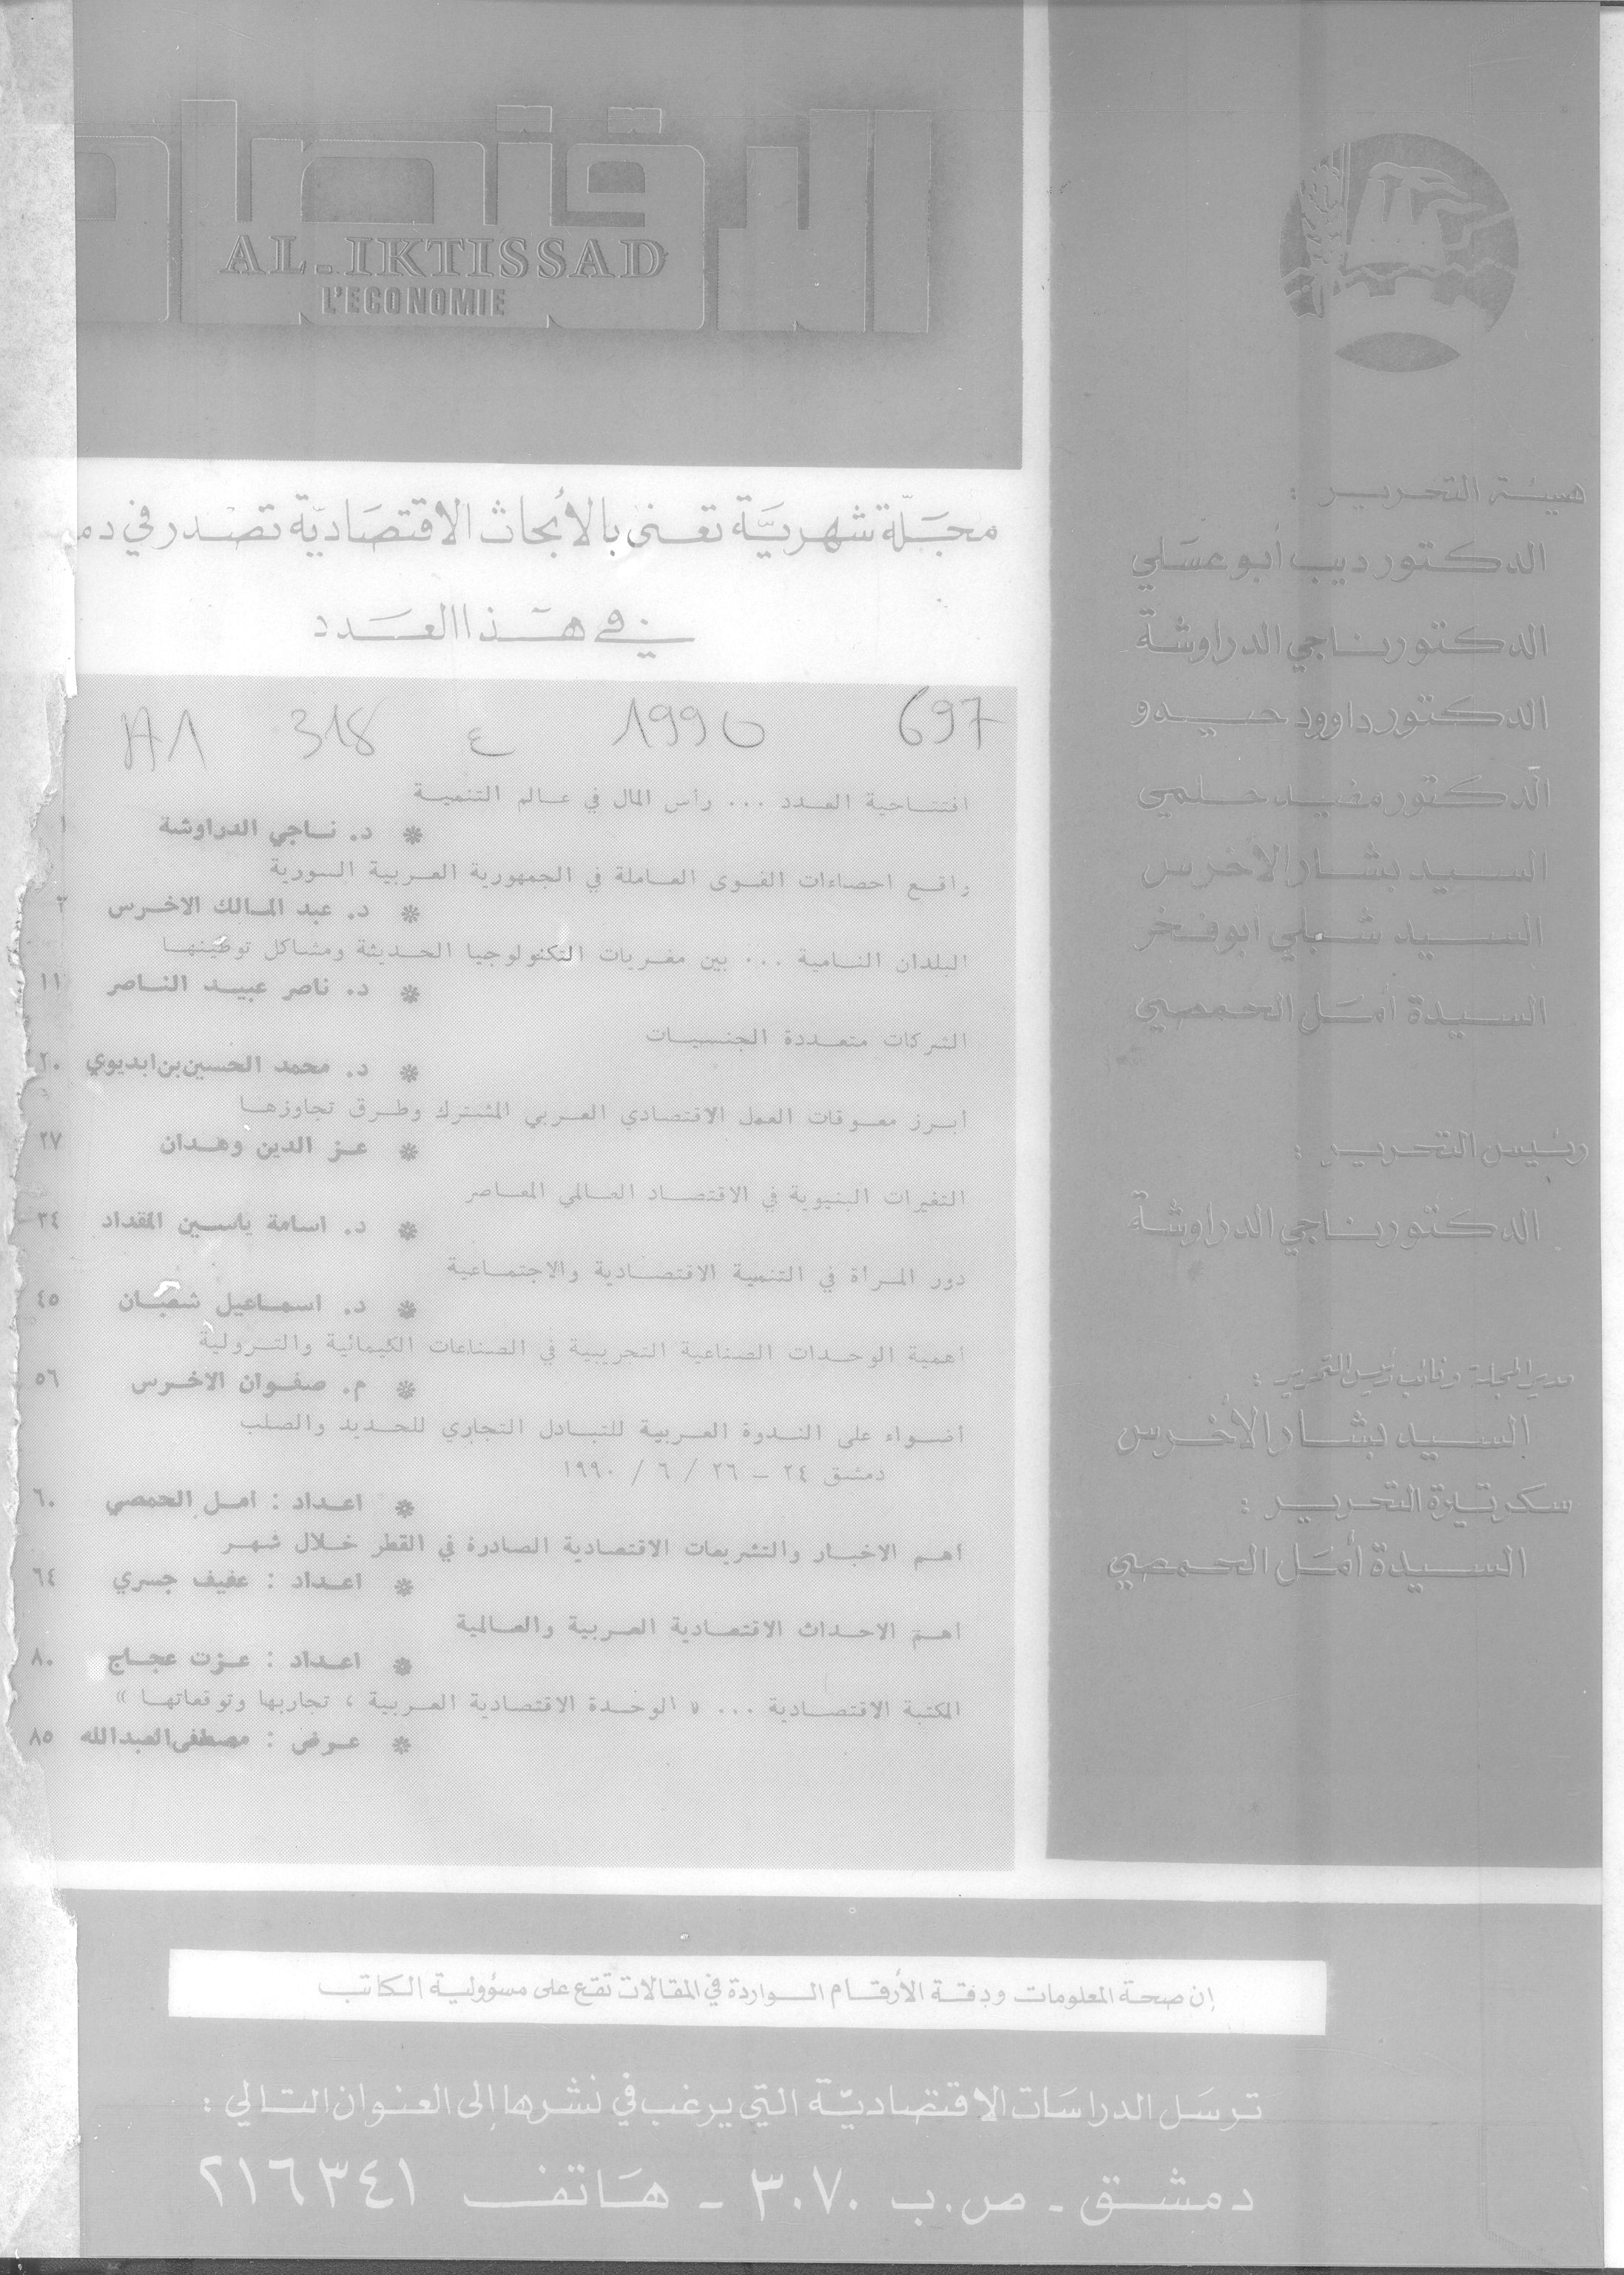 الاقتصاد
AL-IKTISSAD
L'ECONOMIE
مجَلّة شهريَّة تعنى بالأبحاث الاقتصَاديّة تصدر في
في هَذا العَدد
697 1990 ع 318
افتتاحية العدد ... رأس المال في عالم التنمية
* د. ناجي الدراوشة ١
واقع احصاءات القوى العاملة في الجمهورية العربية السورية
* د. عبد المالك الاخرس ٢
البلدان النامية ... بين مغريات التكنولوجيا الحديثة ومشاكل توطينها
* د. ناصر عبيد الناصر ١١
الشركات متعددة الجنسيات
* د. محمد الحسين بن ابديوي ٢٠
أبرز معوقات العمل الاقتصادي العربي المشترك وطرق تجاوزها
* عز الدين وهدان ٢٧
التغيرات البنيوية في الاقتصاد العالمي المعاصر
* د. اسامة ياسين المقداد ٣٤
دور المرأة في التنمية الاقتصادية والاجتماعية
* د. اسماعيل شعبان ٤٥
أهمية الوحدات الصناعية التجريبية في الصناعات الكيمائية والبترولية
* م. صفوان الاخرس ٥٦
أضواء على الندوة العربية للتبادل التجاري للحديد والصلب
دمشق ٢٤ – ٢٦ / ٦ / ١٩٩٠
* اعداد : امل الحمصي ٦٠
أهم الاخبار والتشريعات الاقتصادية الصادرة في القطر خلال شهر
* اعداد : عفيف جسري ٦٤
أهم الاحداث الاقتصادية العربية والعالمية
* اعداد : عزت عجاج ٨٠
المكتبة الاقتصادية ... « الوحدة الاقتصادية العربية ، تجاربها وتوقعاتها »
* عرض : مصطفى العبدالله ٨٥
هيئة التحرير :
الدكتور ديب أبو عسَلي
الدكتور ناجي الدراوشة
الدكتور داوود حيدو
الدكتور مفيد حلمي
السيد بشار الأخرس
السيد شبلي أبو فخر
السيدة أمَل الحمصي
رئيس التحرير :
الدكتور ناجي الدراوشة
مدير المجلة ونائب رئيس التحرير :
السيد بشار الأخرس
سكرتيرة التحرير :
السيدة أمَل الحمصي
إن صحة المعلومات ودقة الأرقام الواردة في المقالات تقع على مسؤولية الكاتب
ترسَل الدراسَات الاقتصاديّة التي يرغب في نشرها إلى العنوان التالي :
دمشق - ص.ب ٣٠٧٠ - هَاتف ٢١٦٣٤١